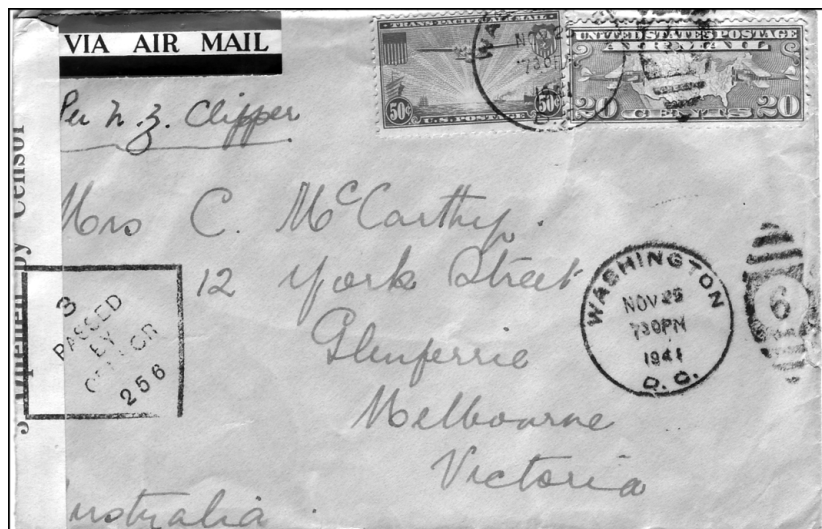 VIA AIR MAIL
Per N.Z. Clipper
TRANS-PACIFIC AIR MAIL
50¢ 50¢
U.S. POSTAGE
NOV 2
730P
UNITED STATES POSTAGE
AIR MAIL
20 20
CENTS
Mrs C. McCarthy.
12 York Street
Glenferrie
Melbourne
Victoria
Australia
Opened by Censor
3
PASSED
BY
CENSOR
256
WASHINGTON
NOV 25
730PM
1941
D.C.
6